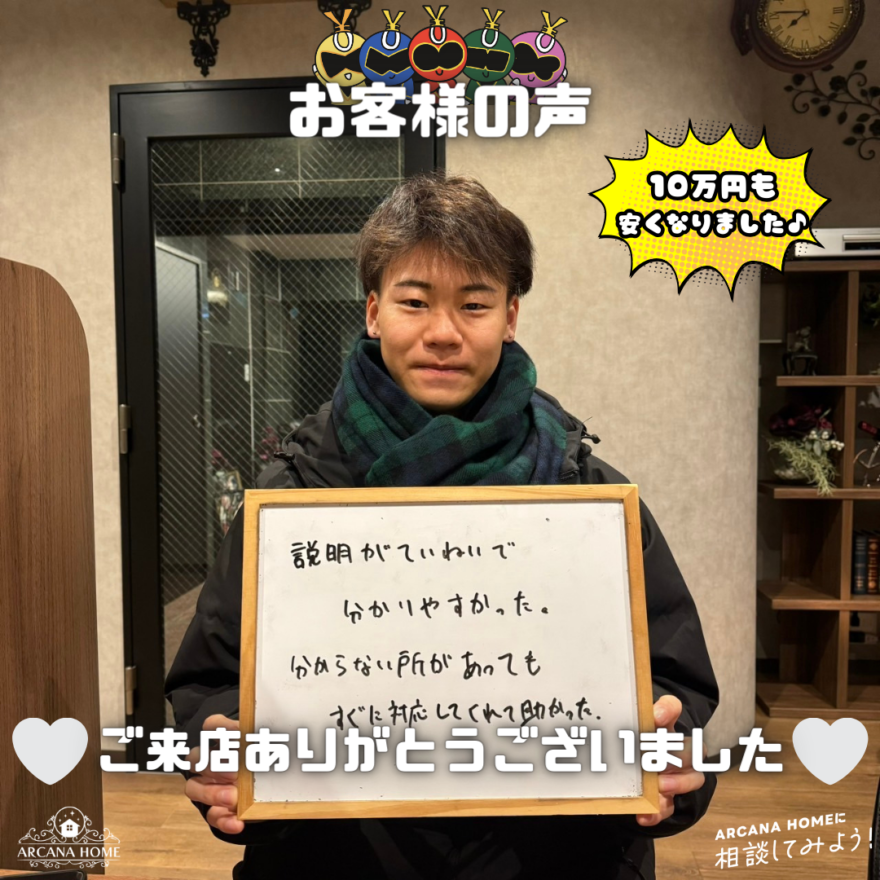 お客様の声
10万円も
安くなりました♪
説明がていねいで
分かりやすかった。
分からない所があっても
すぐに対応してくれて助かった.
ご来店ありがとうございました
ARCANA HOME
ARCANA HOMEに
相談してみよう!